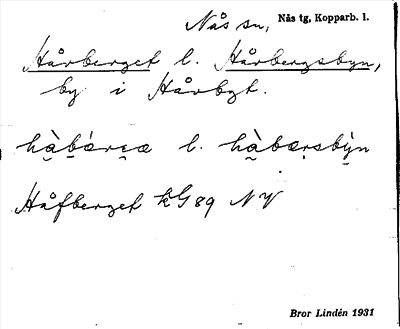 Nås sn, Nås tg, Kopparb. l.
Håvberget l. Håvbergsbyn,
by i Håvbgt.
hàbárgæ l. hàbærsbỳn
Håfberget kG 89 NV
Bror Lindén 1931